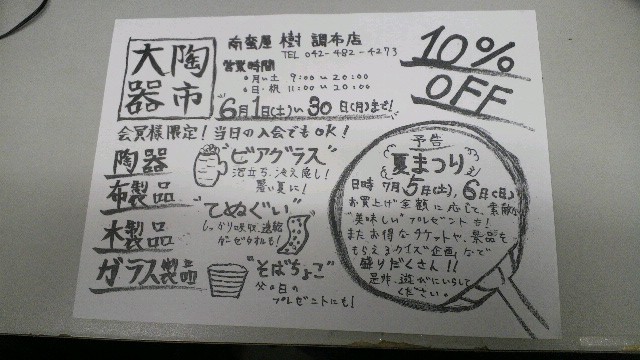 大陶器市
南蛮屋 樹 調布店
TEL 042-482-4273
営業時間
月~土 9:00~20:00
日・祝 11:00~20:00
6月1日(土)~30日(月)まで!
10%
OFF
会員様限定! 当日の入会でもOK!
陶器
布製品
木製品
ガラス製品
"ビアグラス"
泡立ち、冷え癒し!
暑い夏に!
"てぬぐい"
しっかり吸収、速乾
ガーゼタオルも!
"そばちょこ"
父の日の
プレゼントにも!
予告
夏まつり
日時 7月5日(土), 6日(日)
お買上げ金額に応じて、素敵な
"美味しい"プレゼントも!
またお得なチケットや、景品を
もらえるクイズ企画などで
盛りだくさん!!
是非、遊びにいらして
ください。